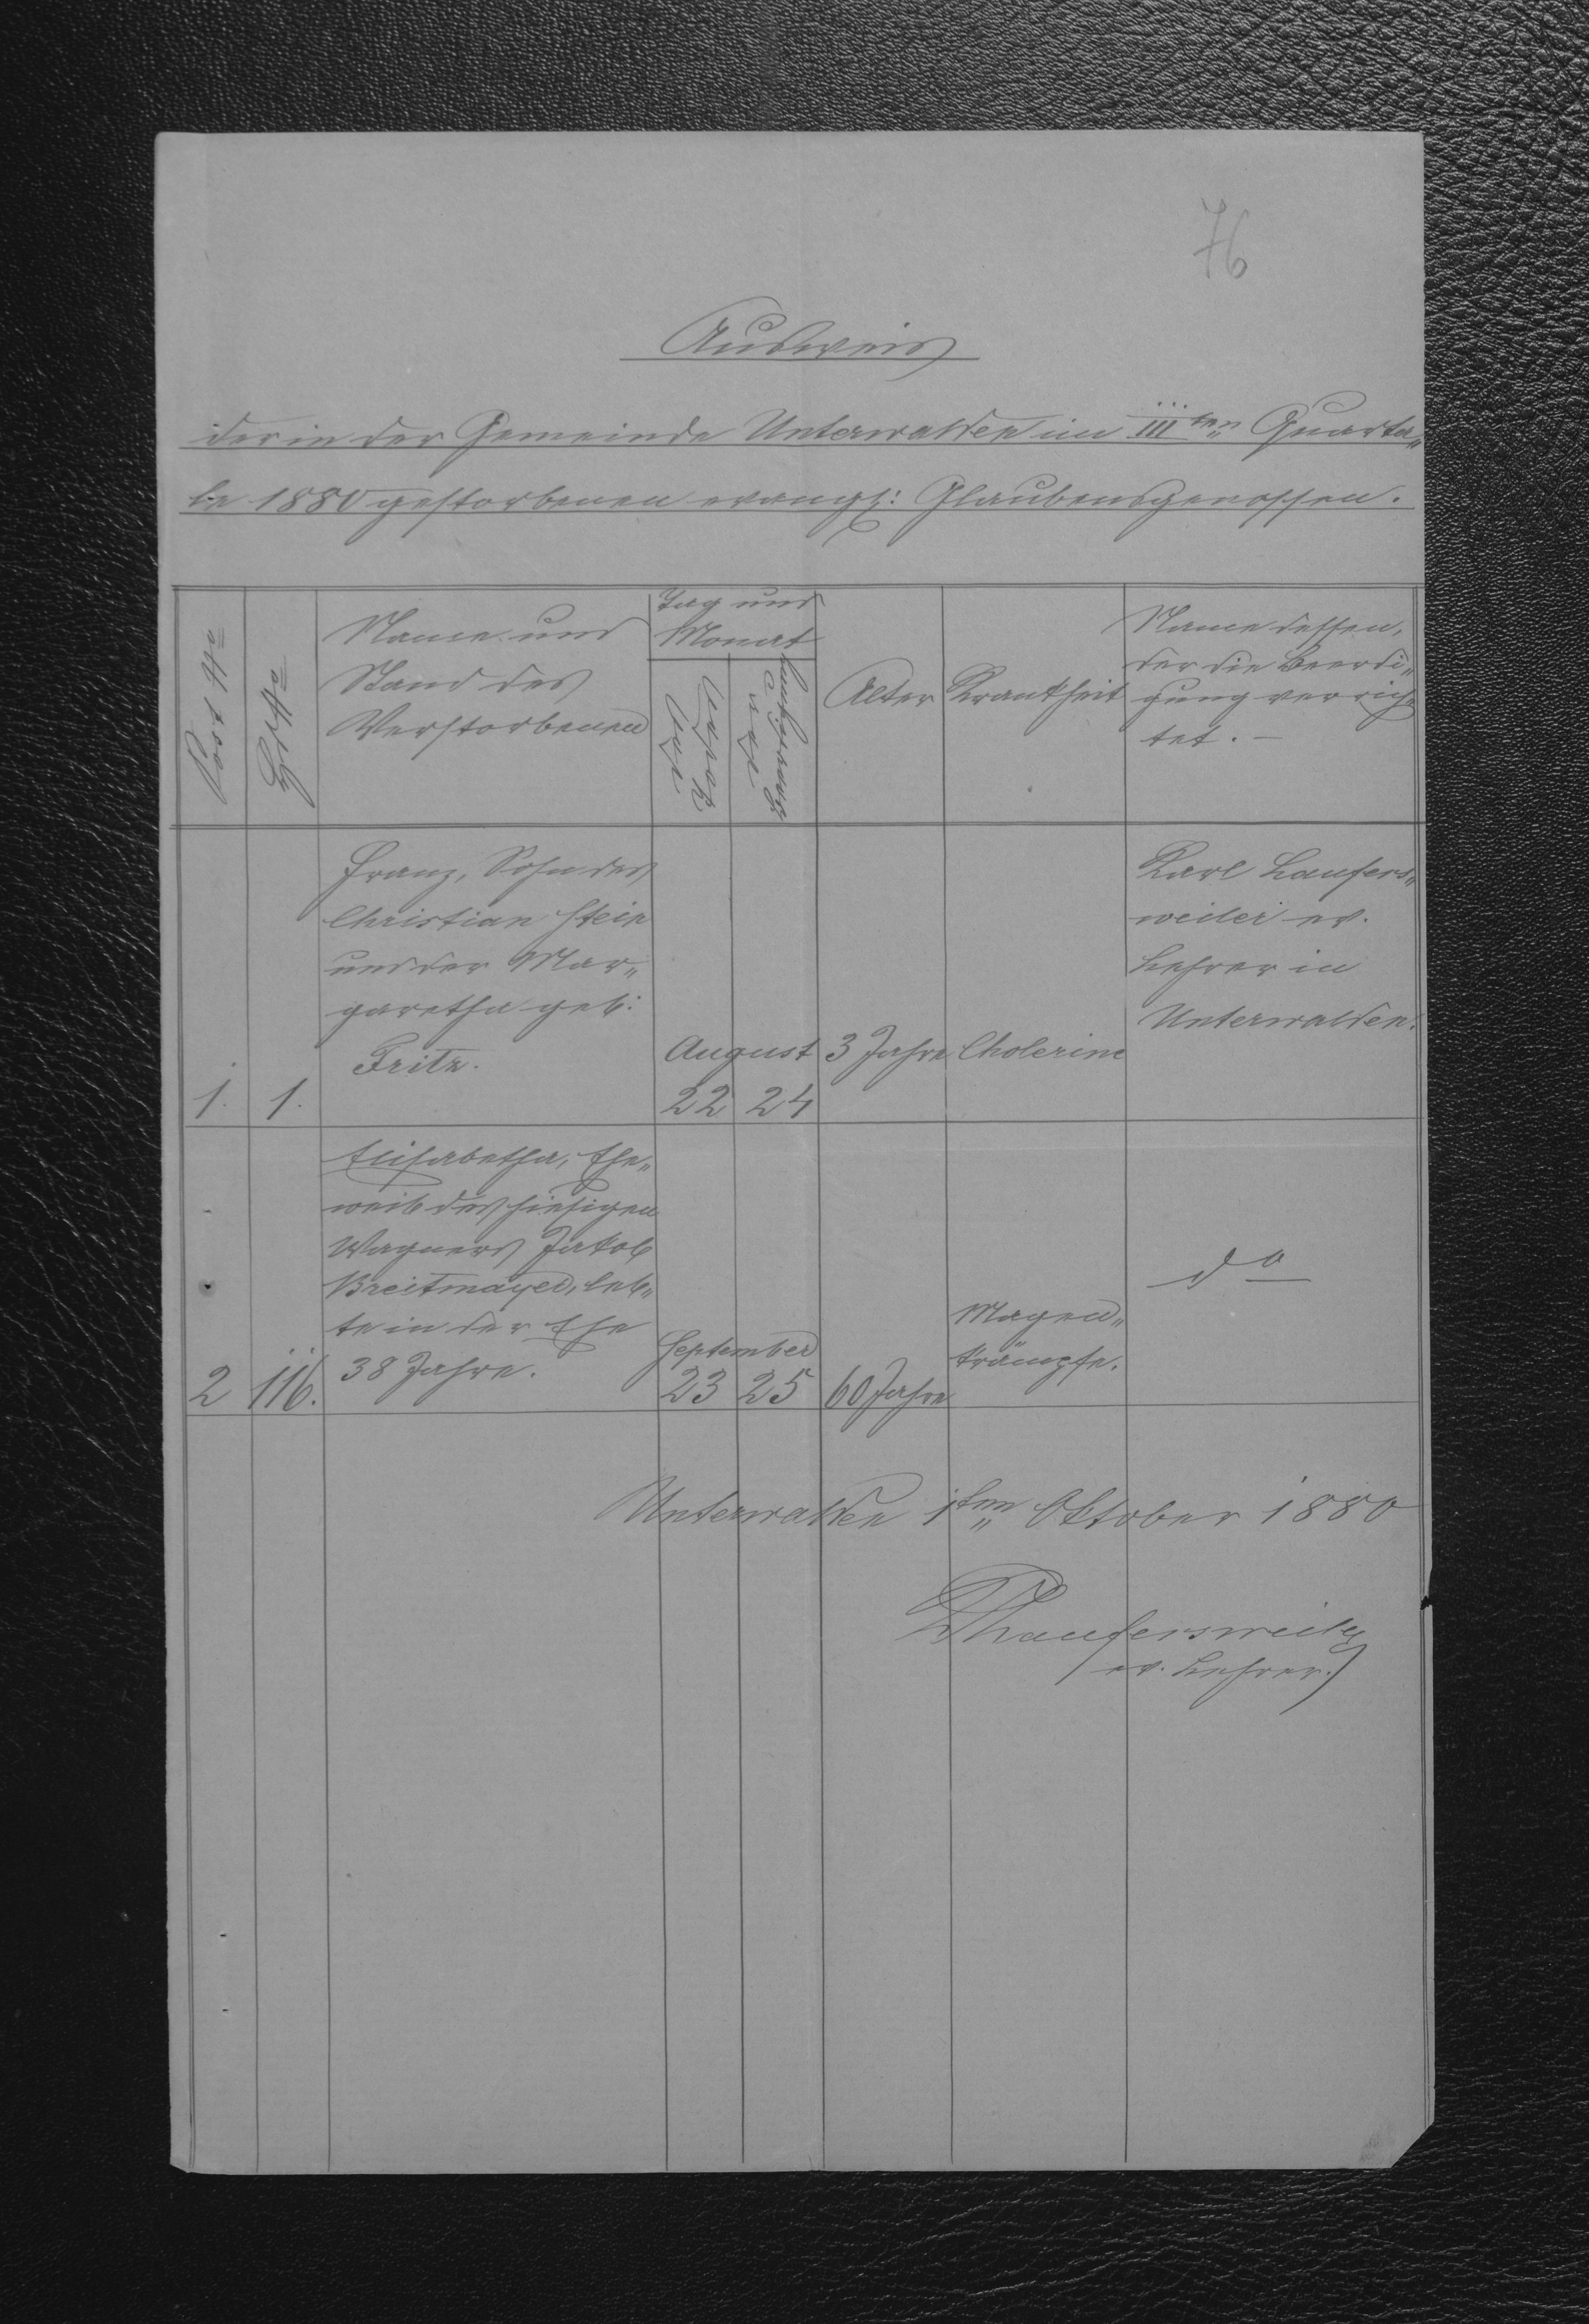 76
Ausweis
der in der Gemeinde Unterwalden im IIIten Quarta„
le 1880 gestorbenen evangl: Glaubensgenossen.
Post No
Hs No
Name und
Stand des
Verstorbenen
Tag und
Monat
des
der
Beerdigung
Alter
Krankheit
Name dessen,
der die Beerdi„
gung verrich
tet. –
1.
1.
Franz, Sohn des
Christian Stein
und der Mar„
garetha geb:
Fritz.
August
22
24
3 Jahre
Cholerine
Karl Laufers„
weiler ev.
Lehrer in
Unterwalden.
2
116.
Elisabetha, Ehe„
weib des hiesigen
Wagners Jakob
Breitmayer, leb„
te in der Ehe
38 Jahre.
September
23
25
60 Jahre
Magen„
krämpfe.
do
Unterwalden 1ten Oktober 1880
Laufersweiler
ev. Lehrer.